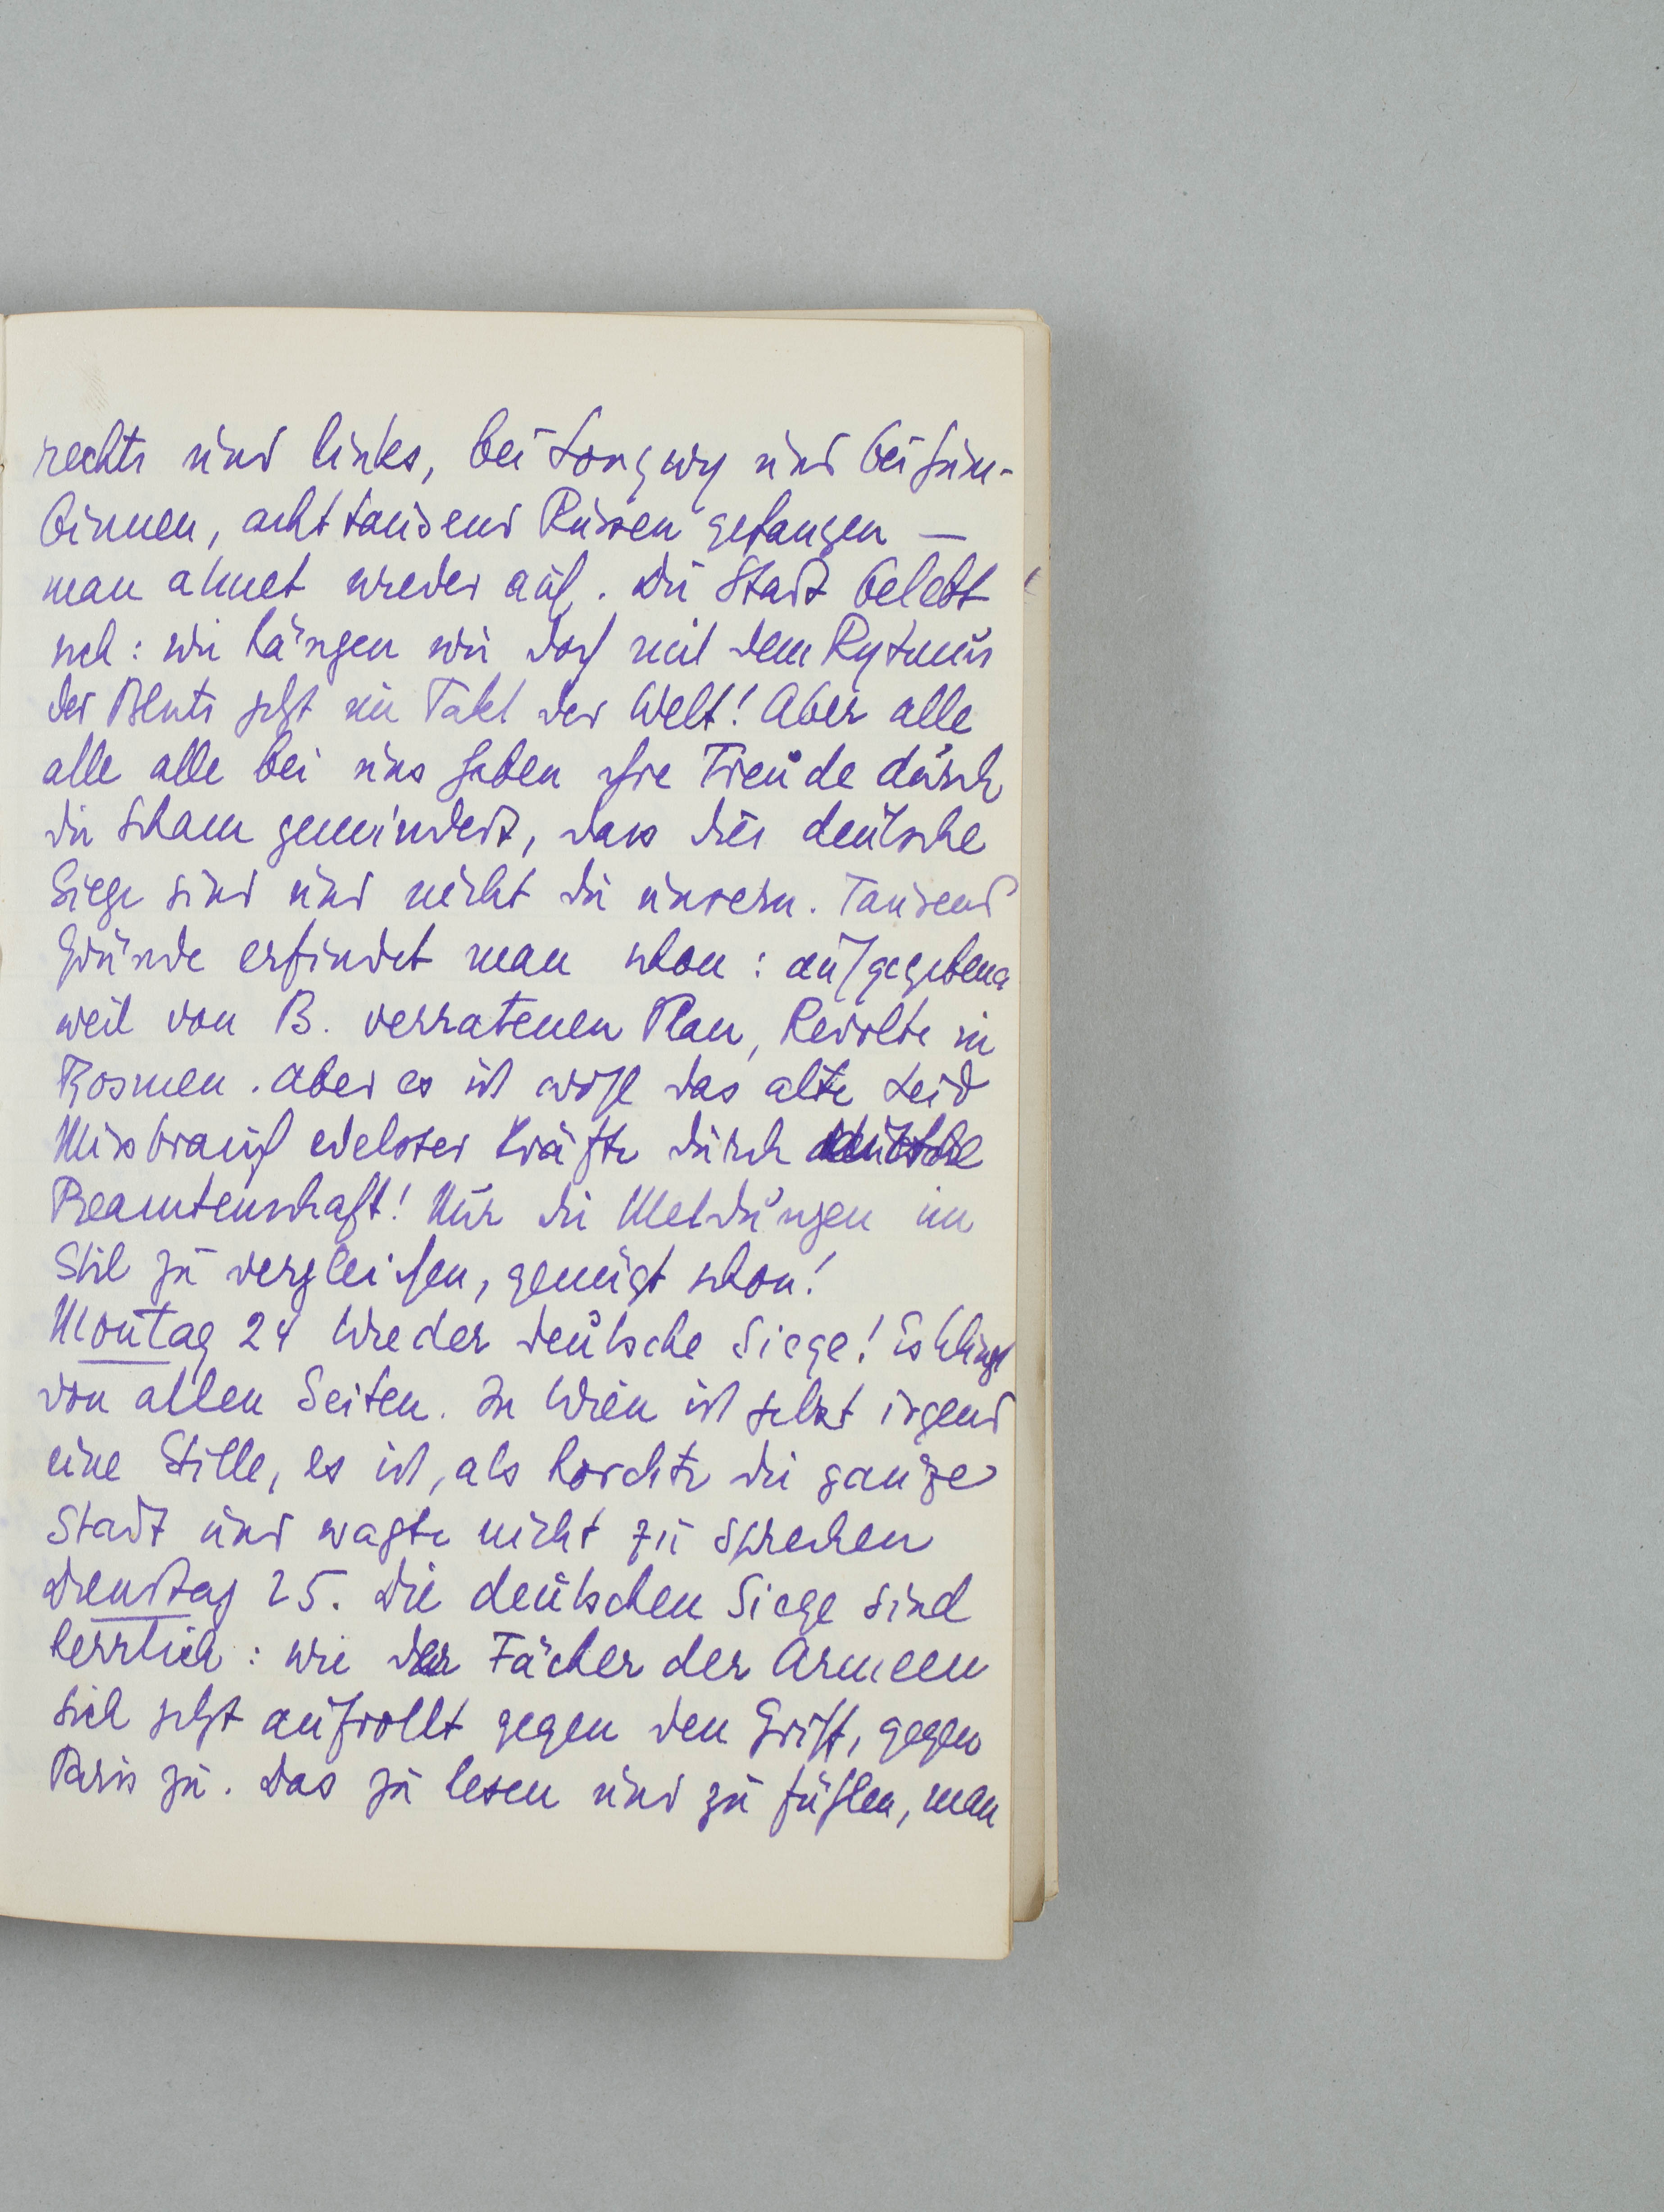 rechts und links, bei Longwy und bei Gum-
binnen, acht tausend Russen gefangen —
man atmet wieder auf. Die Stadt belebt
sich: wie hängen wir doch mit dem Rytmus
des Bluts jetzt im Takt der Welt! Aber alle
alle alle bei uns haben ihre Freude durch
die Scham gemindert, dass dies deutsche
Siege sind und nicht die unsern. Tausend
Gründe erfindet man schon: aufgegebene
weil von B. verratenen Plan, Revolte in
Bosnien. Aber es ist wohl das alte Leid
Missbrauch edelster Kräfte durch
Beamtenschaft! Nur die Meldungen im
Stil zu vergleichen, genügt schon!
Montag 24 Wieder deutsche Siege! Es klingt
von allen Seiten. In Wien ist jetzt irgend
eine Stille, es ist, als horchte die ganze
Stadt und wagte nicht zu sprechen
Dienstag 25. Die deutschen Siege sind
herrlich: wie der Fächer der Armeen
sich jetzt aufrollt gegen den Griff, gegen
Paris zu. Das zu lesen und zu fühlen, man